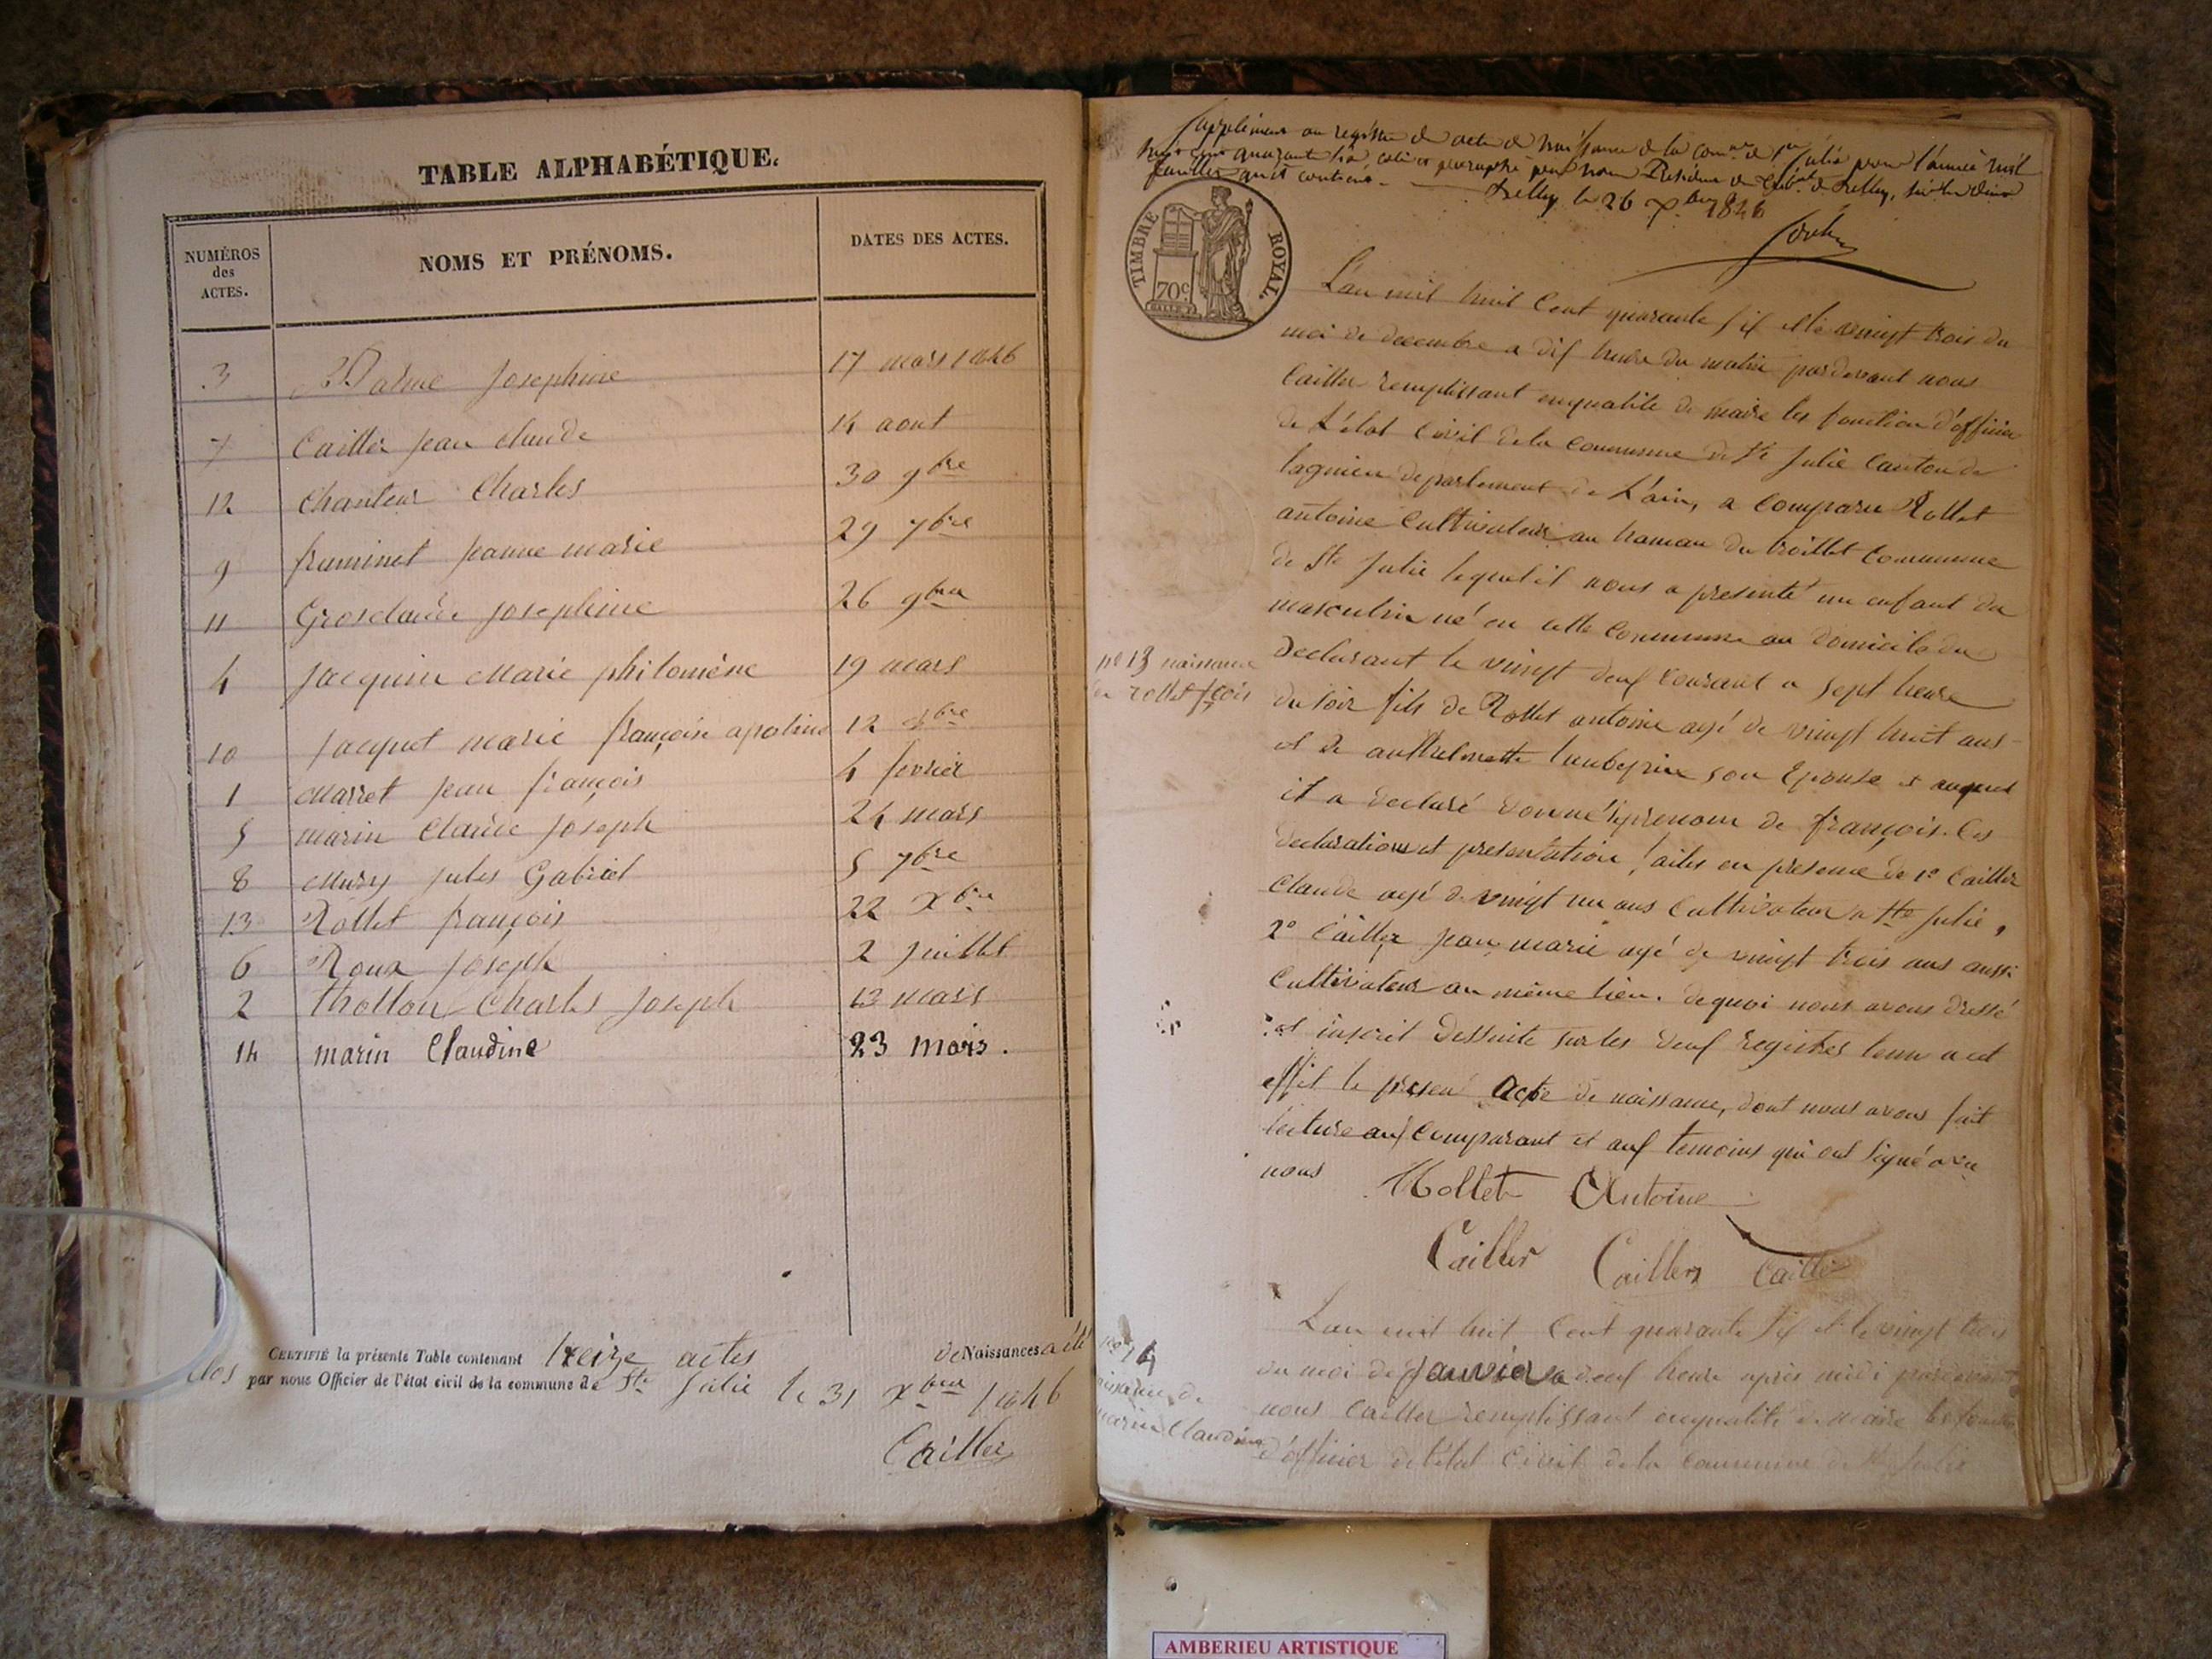 TABLE ALPHABÉTIQUE.
NUMÉROS
des
ACTES.
NOMS ET PRÉNOMS.
DATES DES ACTES.
3 Barme Josephine 17 mars 1846
7 Cailler jean claude 14 aout
12 Chanteur Charles 30 9bre
9 fruminet jeanne marie 29 7bre
11 Grosclaude josephine 26 9bre
4 jacquin Marie philomène 19 mars
10 jacquet marie françoise apoline 12 8bre
1 Marret jean françois 4 fevrier
5 marin Claude joseph 24 mars
8 Mury jules Gabriel 5 7bre
13 Rollet françois 22 Xbre
6 Roux joseph 2 juillet
2 thollon Charles joseph 13 mars
14 marin Claudine 23 mars.
CERTIFIÉ la présente Table contenant treize actes de Naissances a été
clos par nous Officier de l'état civil de la commune de Ste Julie le 31 Xbre 1846
Cailler
Supplément au registre de actes de naissance de la comne de Ste Julie pour l'année mil
huit cent quarante six coté et paraphé par nous Président du tribal de Belley,
feuillet qu'il contient.
Belley le 26 Xbre 1846
TIMBRE ROYAL.
70c
L'an mil huit Cent quarante six et le vingt trois du
moi de decembre a dix heure du matin pardevant nous
Cailler remplissant enqualité de maire les fonction d'officier
de L'état Civil de la Commune de Ste Julie Canton de
lagnieu departement de L'ain, a Comparu Rollet
antoine Cultivateur au hameau du trollet Commune
de Ste Julie lequel il nous a presenté un enfant du
masculin né en cette Commune au domicile du
declarant le vingt deux courant a sept heure
du soir fils de Rollet antoine agé de vingt huit ans
et de anthelmette laubepin son Epouse et auquel
il a declaré donné le prenom de françois. les
declarations et presentation faites en presence de 1° Cailler
Claude agé de vingt un ans Cultivateur a Ste Julie,
2° Cailler jean marie agé de vingt trois ans aussi
Cultivateur au même lieu. de quoi nous avons dressé
et inscrit dessuite sur les deux registres tenu a cet
effet le present acte de naissance, dont nous avons fait
lecture aux Comparant et aux temoins qui ont signé avec
nous
no 13 naissance
de rollet fçois
Rollet Antoine
Cailler Cailler Cailler
L'an mil huit Cent quarante six et le vingt trois
du moi de janvier a deux heure après midi pardevant
nous Cailler remplissant enqualité de maire les fonction
d'officier de l'état Civil de la Commune de Ste Julie
no 14
naissance de
marin Claudine
AMBERIEU ARTISTIQUE